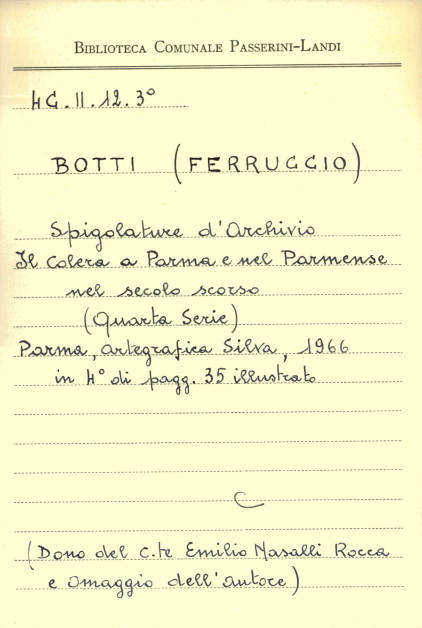 BIBLIOTECA COMUNALE PASSERINI-LANDI
4G.II.12.3°
BOTTI (FERRUCCIO)
Spigolature d'Archivio
Il Colera a Parma e nel Parmense
nel secolo scorso
(Quarta Serie)
Parma, Artegrafica Silva, 1966
in 4° di pagg. 35 illustrato
C
(Dono del C.te Emilio Nasalli Rocca
e omaggio dell'autore)